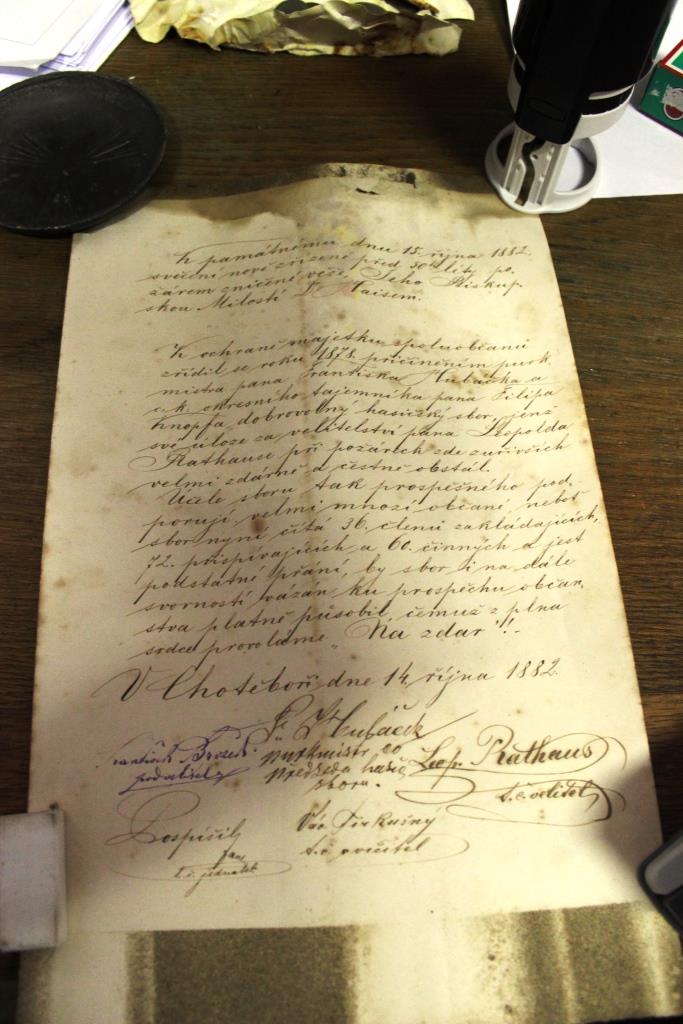 K památnému dnu 15. října 1882,
svěcení nově zřízené před 50ti léty po-
žárem zničené věže, Jeho Biskup-
skou Milostí Dr. Haisem.
K ochraně majetku spoluobčanů
zřídil se roku 1878. přičiněním purk-
mistra pana Františka Hubáčka a
c. k. okresního tajemníka pana Filipa
Knopfa dobrovolný hasičský sbor, jenž
své úloze za velitelství pana Leopolda
Rathause při požárech zde zuřivších
velmi zdárně a čestně obstál.
Účele sboru tak prospěšného pod-
porují velmi mnozí občané, neboť
sbor nyní čítá 36. členů zakládajících,
72. přispívajících a 60. činných a jest
podstatné přání, by sbor i na dále
svorností vázán ku prospěchu občan-
stva platně působil, čemuž z plna
srdce provoláme „Na zdar"!
V Chotěboři dne 14. října 1882.
Fr. Hubáček
purkmistr co
předseda hasič.
sboru.
František
podvelitel
Leop. Rathaus
t. č. velitel
Pospíšil
Jan
t. č. jednatel
Vác. Jirkušný
t. č. cvičitel